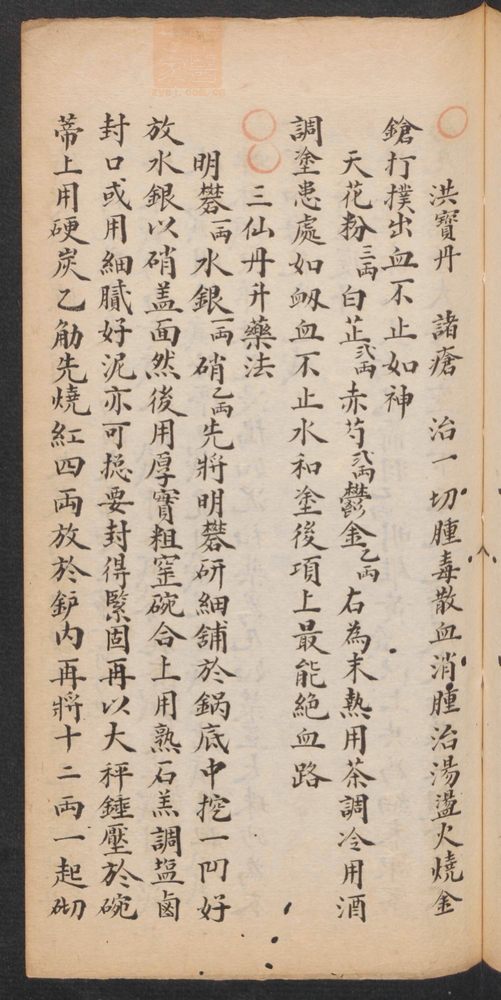 洪寶丹　諸瘡　治一切腫毒散血消腫治湯盪火燒金
鎗打撲出血不止如神
天花粉三兩白芷弍兩赤芍弍兩鬱金乙兩　右為末熱用茶調冷用酒
調塗患處如衂血不止水和塗後項上最能絕血路
三仙丹升藥法
明礬一兩水銀一兩硝乙兩先將明礬研細舖於鍋底中挖一凹好
放水銀以硝盖面然後用厚實粗窑碗合上用熟石羔調盐鹵
封口或用細膩好泥亦可揔要封得緊固再以大秤錘壓於碗
蒂上用硬炭乙觔先燒紅四兩放於炉内再將十二兩一起砌